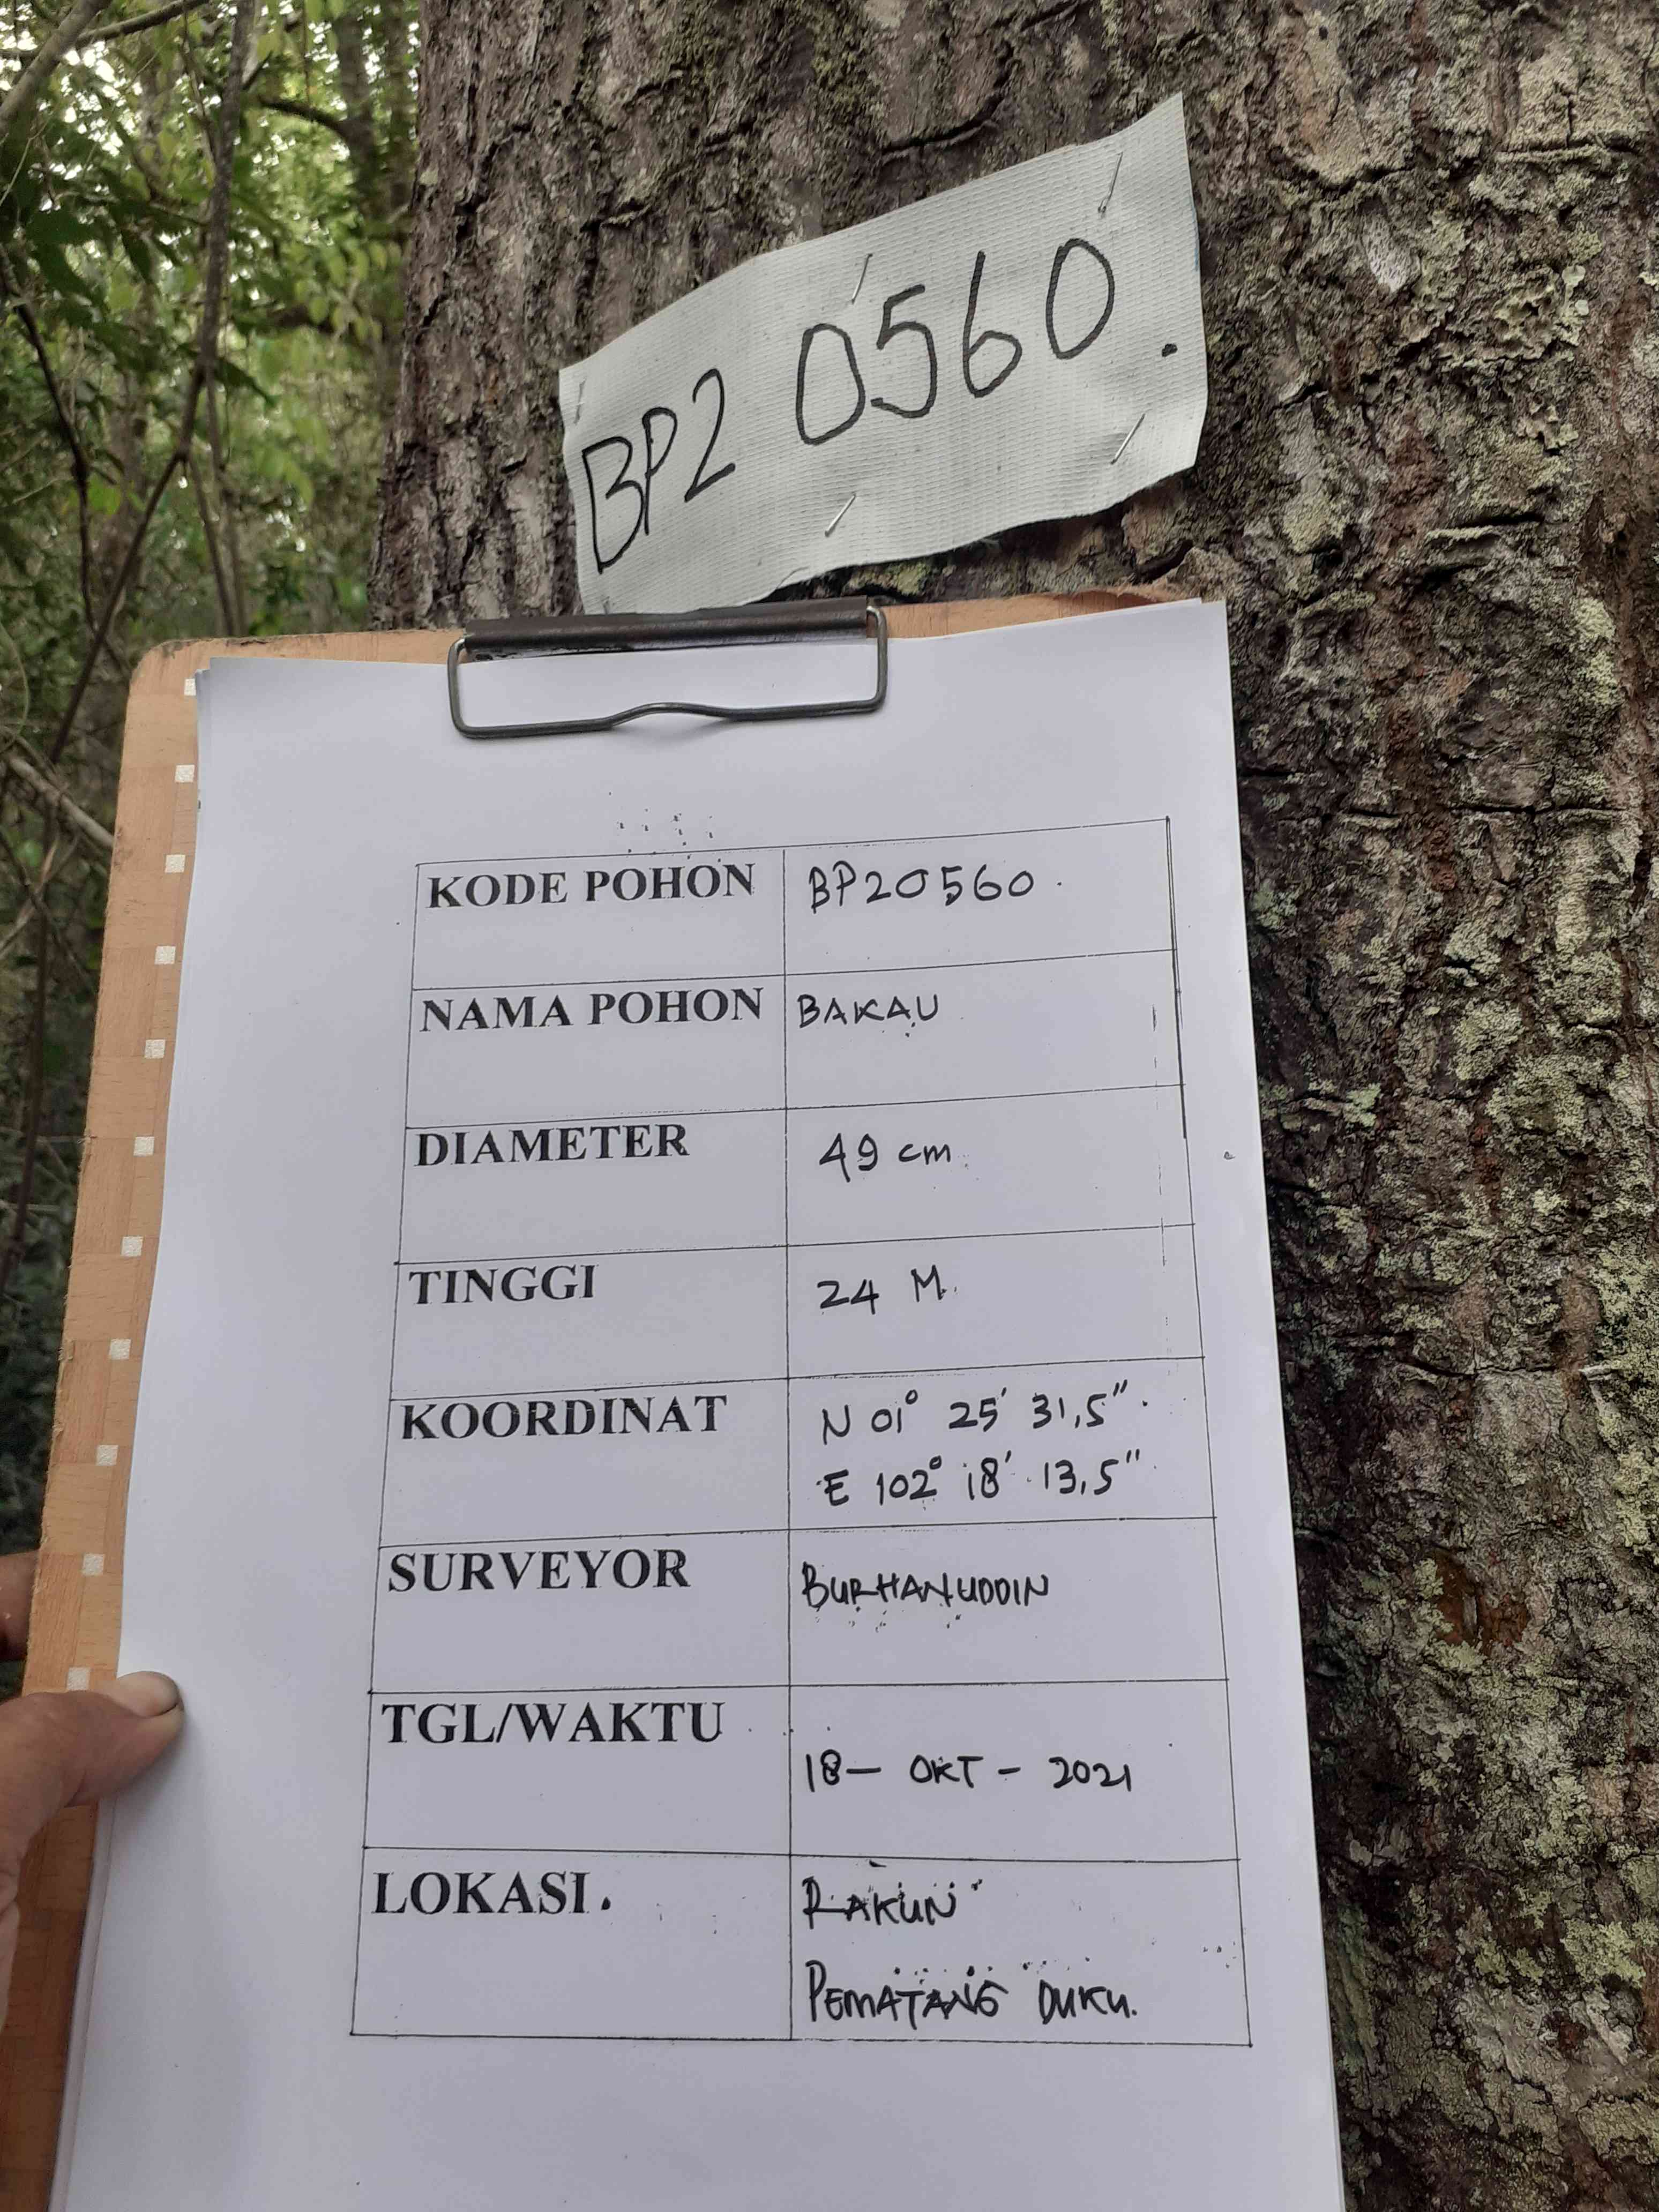 BP2 0560.
KODE POHON BP20560.
NAMA POHON BAKAU
DIAMETER 49 cm
TINGGI 24 M.
KOORDINAT N 01° 25' 31,5"
E 102° 18' 13,5"
SURVEYOR BURHANUDDIN
TGL/WAKTU 18 - OKT - 2021
LOKASI. RAKUN
PEMATANG DUKU.